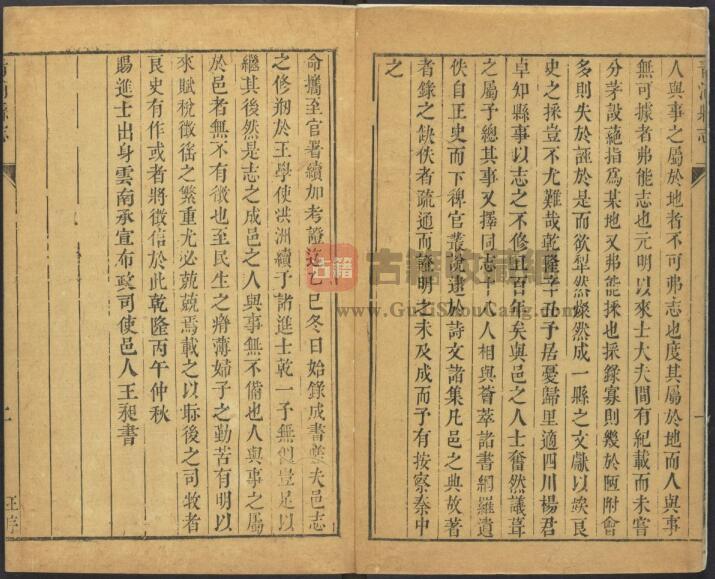 人與事之屬於地者不可弗志也度其屬於地而人與事
無可據者弗能志也元明以來士大夫間有紀載而未嘗
分茅設蕝指爲某地又弗能採也採錄寡則幾於陋附會
多則失於誣於是而欲犁然燦然成一縣之文獻以竢良
史之採豈不尤難哉乾隆辛丑予居憂歸里適四川楊君
卓知縣事以志之不修且百年矣與邑之人士奮然議葺
之屬予總其事又擇同志十八人相與薈萃諸書網羅遺
佚自正史而下稗官叢說逮於詩文諸集凡邑之典故著
者錄之缺佚者疏通而證明之未及成而予有按察秦中
之
命攜至官署續加考證迄乙巳冬日始錄成書業夫邑志
之修刱於王學使洪洲續于諸進士乾一予無似豈足以
繼其後然是志之成邑之人與事無不備也人與事之屬
於邑者無不有徵也至民生之瘠薄婦子之勤苦有明以
來賦稅徵徭之繁重尤必兢兢焉載之以眎後之司牧者
良史有作或者將徵信於此乾隆丙午仲秋
賜進士出身雲南承宣布政司使邑人王昶書
青浦縣志
一
青浦縣志
二
王序
古籍
古籍收藏
www.GuJiShouCang.com